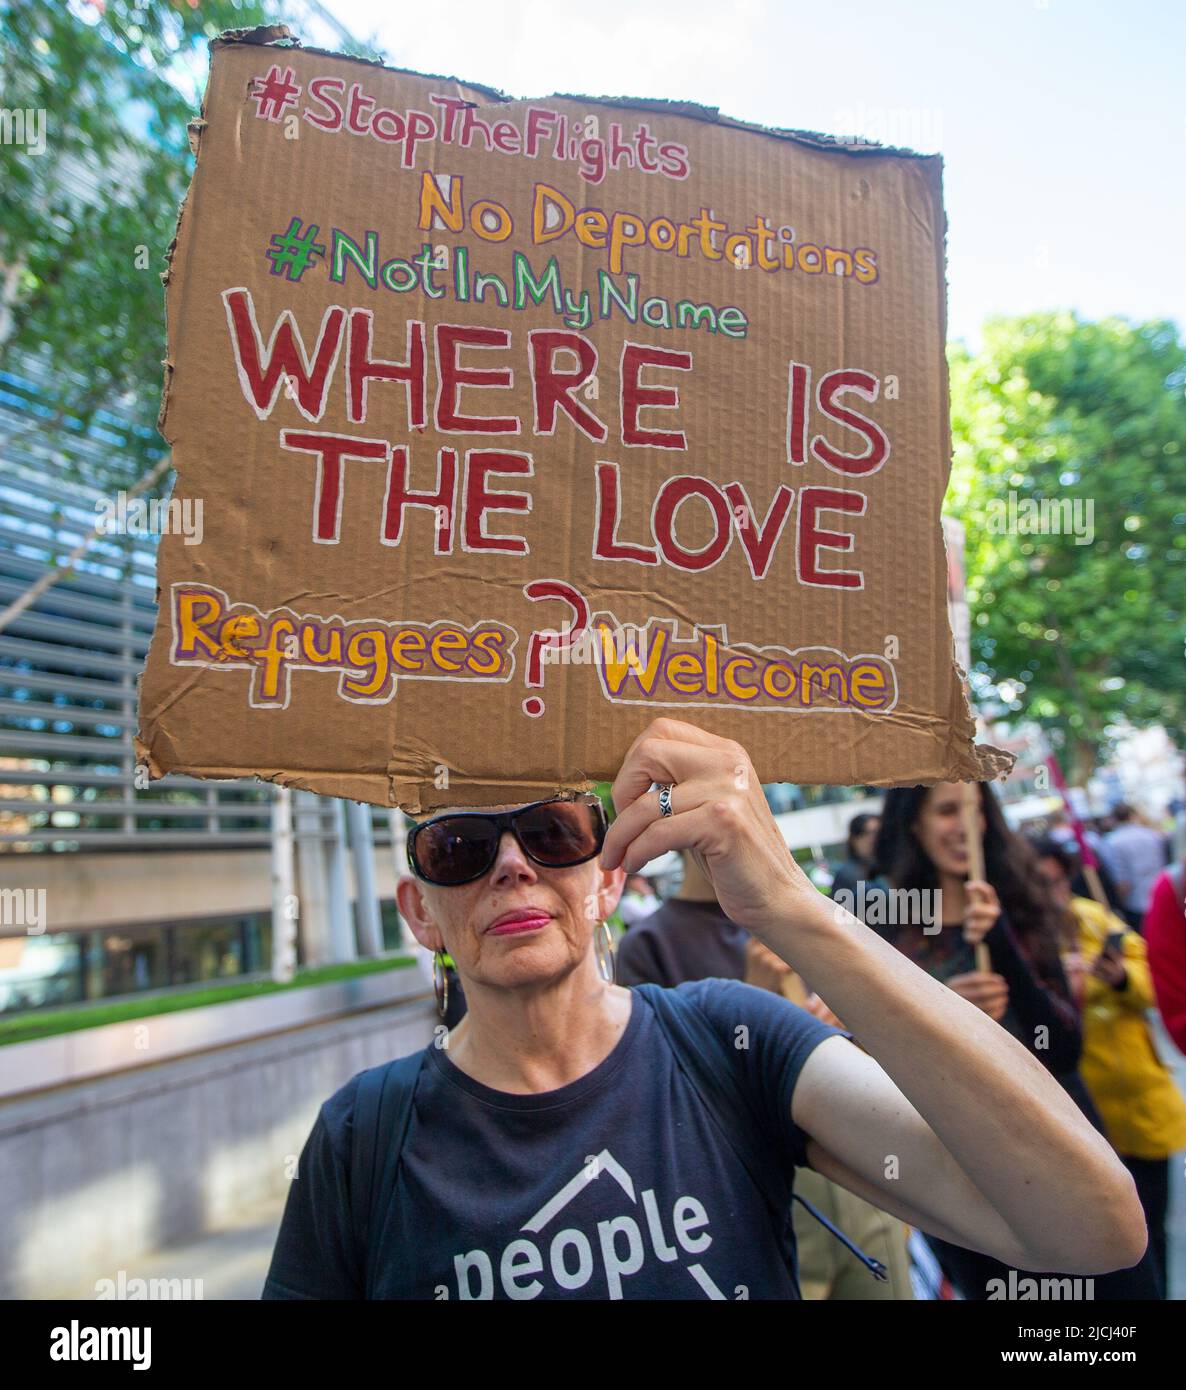 #StopTheFlights
No Deportations
#NotInMyName
WHERE IS
THE LOVE
?
Refugees Welcome
people
alamy
Image ID: 2JCJ40F
www.alamy.com